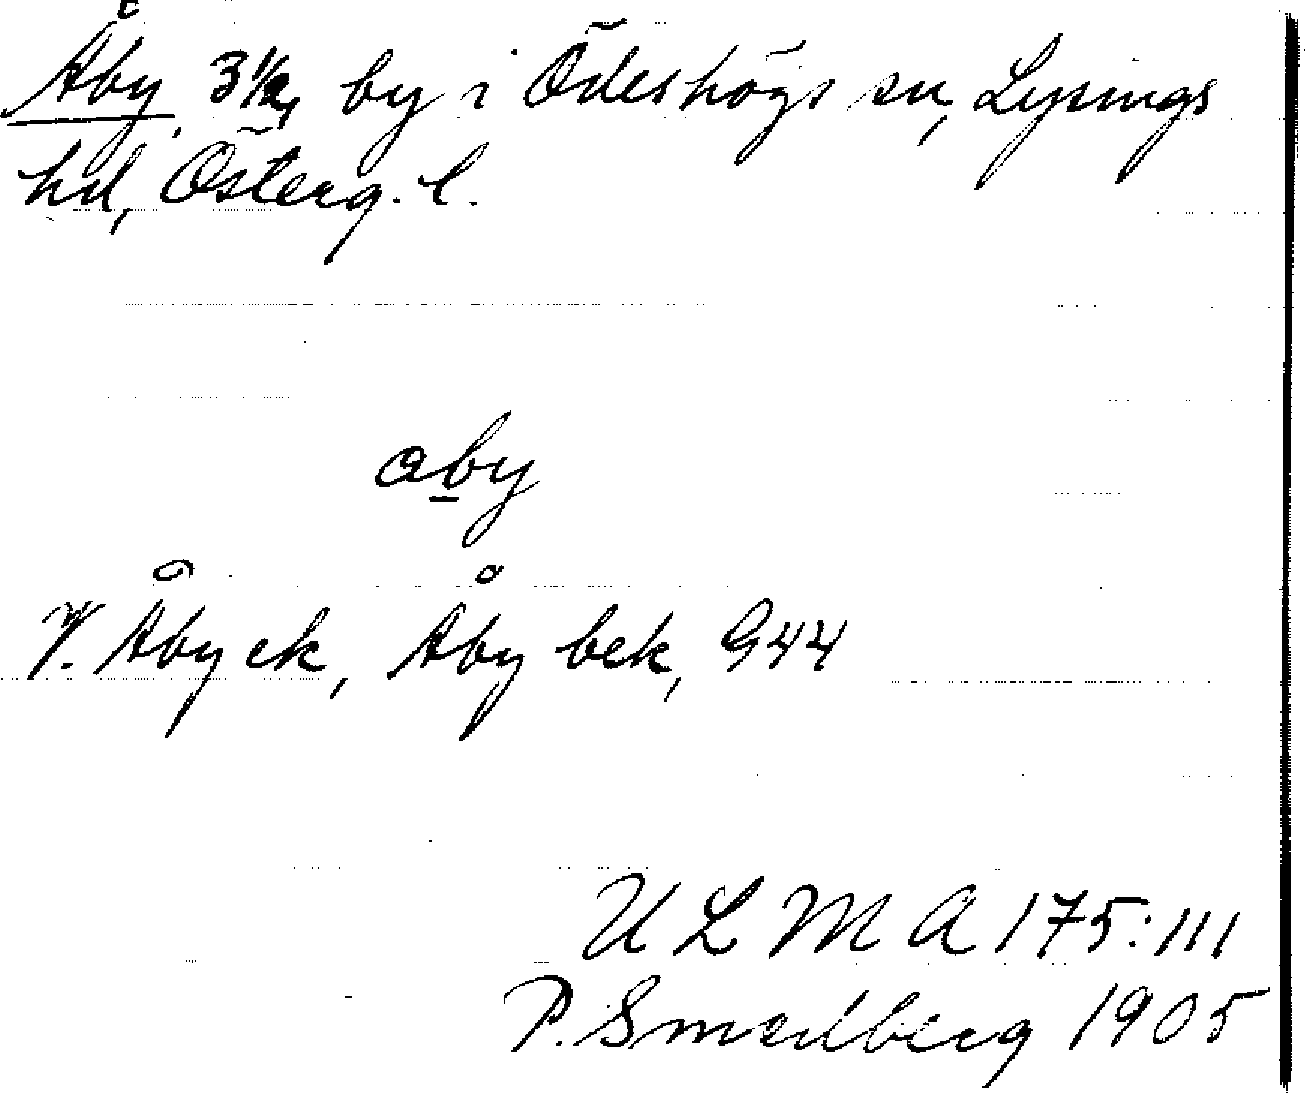 Åby, 3 1/2, by i Ödeshögs sn, Lysings
hd, Österg. l.
aby
V. Åby ek, Åby bek, G44
ULMA 175:111
P. Smedberg 1905